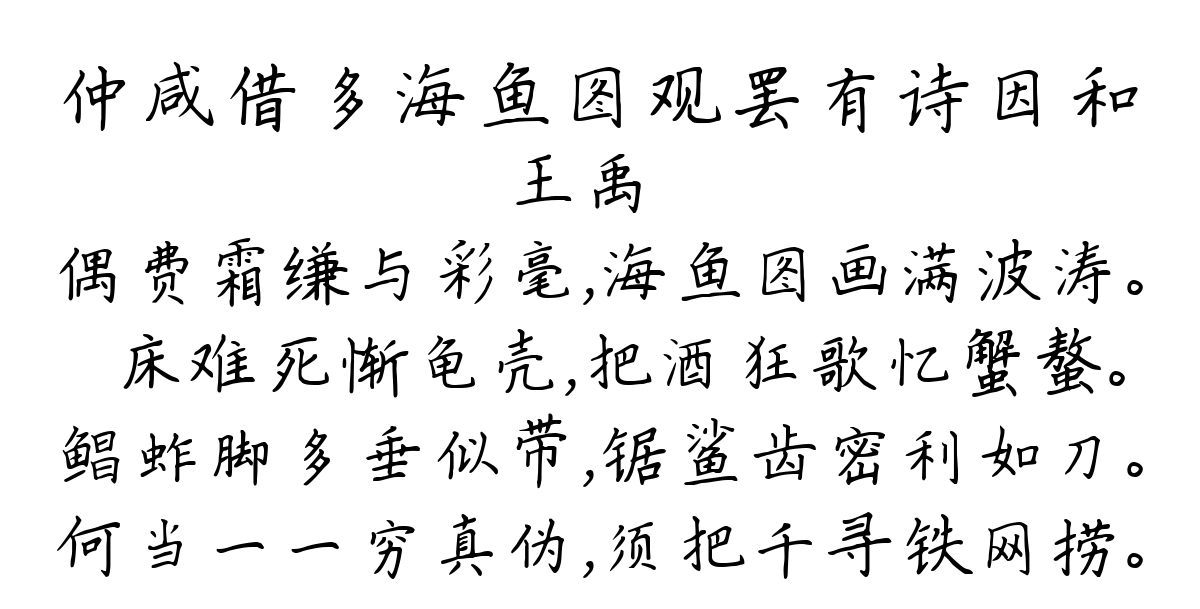 仲咸借多海鱼图观罢有诗因和
王禹
偶费霜缣与彩毫,海鱼图画满波涛。
床难死惭龟壳,把酒狂歌忆蟹螯。
鲳蚱脚多垂似带,锯鲨齿密利如刀。
何当一一穷真伪,须把千寻铁网捞。